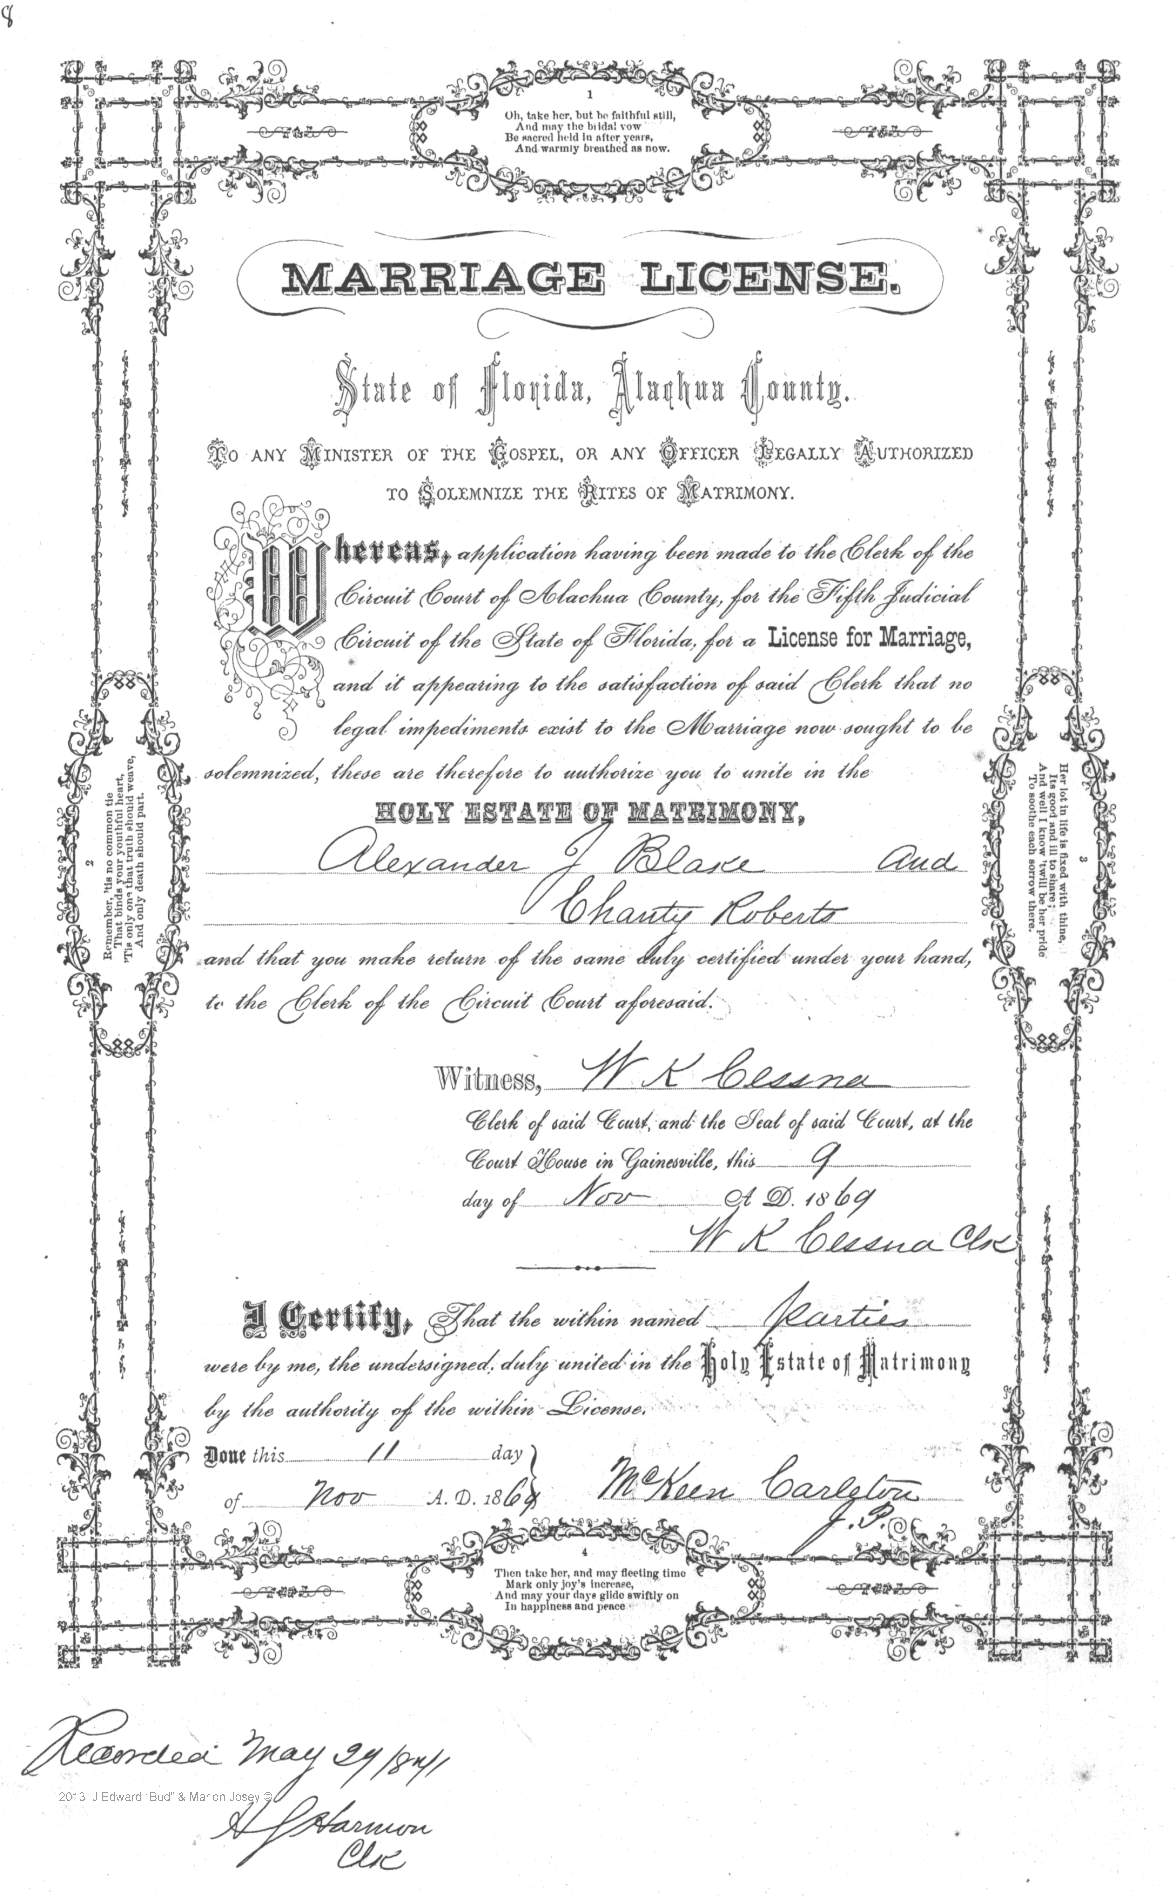 8
1
Oh, take her, but be faithful still,
And may the bridal vow
Be sacred held in after years,
And warmly breathed as now.
MARRIAGE LICENSE.
State of Florida, Alachua County.
To any Minister of the Gospel, or any Officer Legally Authorized
to Solemnize the Rites of Matrimony.
Whereas, application having been made to the Clerk of the
Circuit Court of Alachua County, for the Fifth Judicial
Circuit of the State of Florida, for a License for Marriage,
and it appearing to the satisfaction of said Clerk that no
legal impediments exist to the Marriage now sought to be
solemnized, these are therefore to authorize you to unite in the
HOLY ESTATE OF MATRIMONY,
Alexander J Blake and
Charity Roberts
and that you make return of the same duly certified under your hand,
to the Clerk of the Circuit Court aforesaid.
Witness, W K Cessna
Clerk of said Court, and the Seal of said Court, at the
Court House in Gainesville, this 9
day of Nov A. D. 1869
W K Cessna Clk
I Certify, That the within named parties
were by me, the undersigned, duly united in the Holy Estate of Matrimony
by the authority of the within License.
Done this 11 day
of Nov A. D. 1869
McKeen Carleton
J.P.
2
Remember, 'tis no common tie
That binds your youthful heart,
'Tis only one that truth should weave,
And only death should part.
3
Her lot in life is fixed with thine,
Its good and ill to share;
And well I know 'twill be her pride
To soothe each sorrow there.
4
Then take her, and may fleeting time
Mark only joy's increase,
And may your days glide swiftly on
In happiness and peace
Recorded May 29
2013 J Edward "Bud" & Marion Josey ©
Harmon
Clk